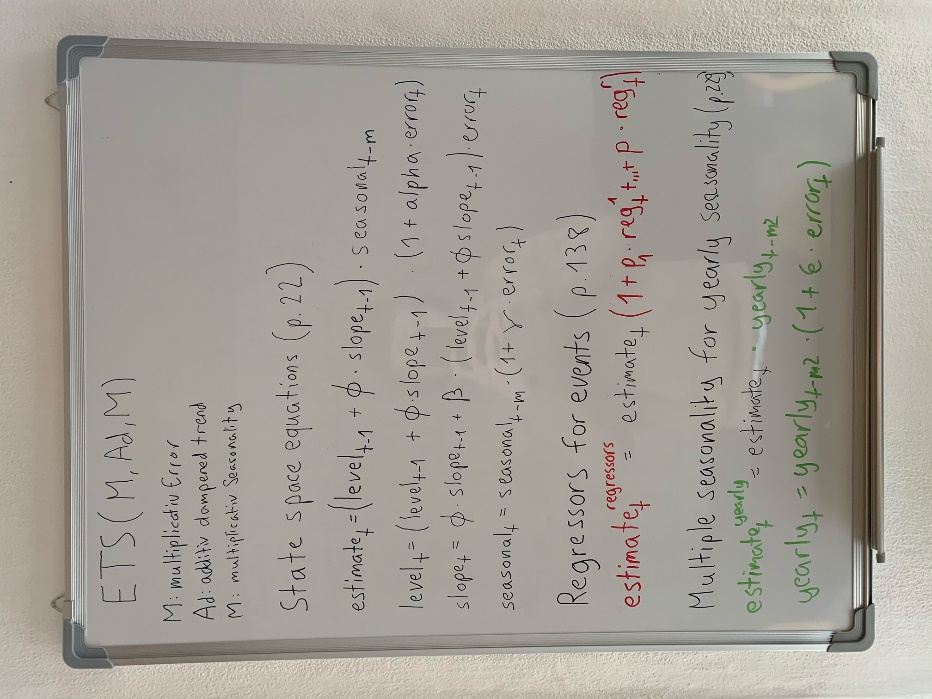 ETS(M,Ad,M)
M: multiplicativ Error
Ad: additiv dampened trend
M: multiplicativ Seasonality
State space equations (p.22)
estimate_t = (level_t-1 + ϕ · slope_t-1) · seasonal_t-m
level_t = (level_t-1 + ϕ · slope_t-1) · (1 + alpha · error_t)
slope_t = ϕ · slope_t-1 + β · (level_t-1 + ϕ slope_t-1) · error_t
seasonal_t = seasonal_t-m · (1 + γ · error_t)
Regressors for events (p.138)
estimate_t^regressors = estimate_t (1 + p_1 · reg_t^1 + ... + p_r · reg_t^r)
Multiple seasonality for yearly seasonality (p.229)
estimate_t^yearly = estimate_t · yearly_t-m2
yearly_t = yearly_t-m2 · (1 + ϵ · error_t)